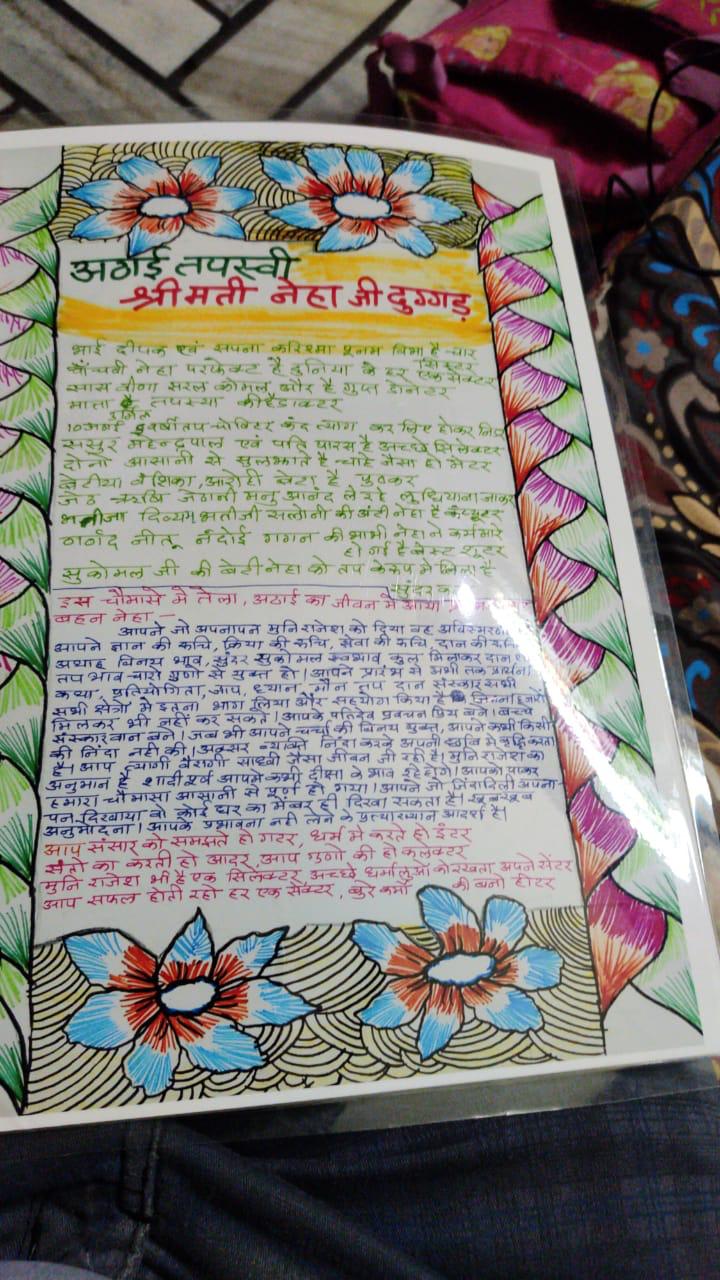 अठाई तपस्वी
श्रीमती नेहा जी दुग्गड़
भाई दीपक एवं सपना करिश्मा पूनम विभा है चार सिस्टर
पाँचवी नेहा परफेक्ट है दुनिया के हर एक सेक्टर
सास वीणा सरल कोमल और है गुप्त डोनेटर
माता तपस्या की है डाक्टर
सुनिल
वर्षीतप चोविहर कंद त्याग कर लिए होकर
ससुर महेन्द्रपाल एवं पति पारस है अच्छे सिलेक्टर
दोनो आसानी से सुलझाते है चाहे जैसा हो मेटर
बेटीया वंशिका, आरोही बेटा है
जेठ जेठानी मनु आनंद ले रहे लुधियाना जाकर
भतीजा दिव्यम भतीजी सलोनी की अंटी नेहा है कंप्यूटर
नीतू नंदोई गगन की भाभी नेहा ने कर्म मारे
हो गई है बेस्ट शूटर
सुकोमल जी की बेटी नेहा को तप के रूप में मिला है
सुंदर
इस चौमासे में तेला, अठाई का जीवन में आया
बहन नेहा -
आपने जो अपनापन मुनि राजेश को दिया वह
आपने ज्ञान की रुचि, क्रिया की रुचि, सेवा की रुचि, दान की
अथाह विनय भाव, सुंदर सुकोमल स्वभाव, कुल मिलाकर दान
तप भाव चारो गुणो से युक्त हो। आपने प्रारंभ से अभी तक प्रार्थना
कथा, प्रतियोगिता, जाप, ध्यान, मौन तप दान संस्कार सभी
सभी क्षेत्रो में इतना भाग लिया और सहयोग किया है जितना हजारो
मिलकर भी नहीं कर सकते। आपके पतिदेव प्रवचन प्रिय बने। बच्चे
संस्कारवान बने। जब भी आपने चर्चा की विनय युक्त, आपने कभी किसी
की निंदा नही की। अक्सर व्यक्ति निंदा करके अपनी छवि में वृद्धि करता
है। आप त्यागी वैरागी साध्वी जैसा जीवन जी रही है। मुनि राजेश का
अनुमान है शादी पूर्व आपमें कभी दीक्षा के भाव रहे होंगे। आपको पाकर
हमारा चौमासा आसानी से पूर्ण हो गया। आपने जो जिंदादिली अपना-
पन दिखाया वो कोई घर का मेंबर ही दिखा सकता है। खूब खूब
अनुमोदना। आपके प्रभावना नही लेने के प्रत्याख्यान आदर्श है।
आप संसार को समझते हो गटर, धर्म में करते हो ईंटर
संतो का करती हो आदर, आप गुणो की हो कलेक्टर
मुनि राजेश भी है एक सिलेक्टर, अच्छे धर्मालुओं को रखता अपने सेंटर
आप सफल होती रहो हर एक सेक्टर, बुरे कर्मो की बनो हीटर